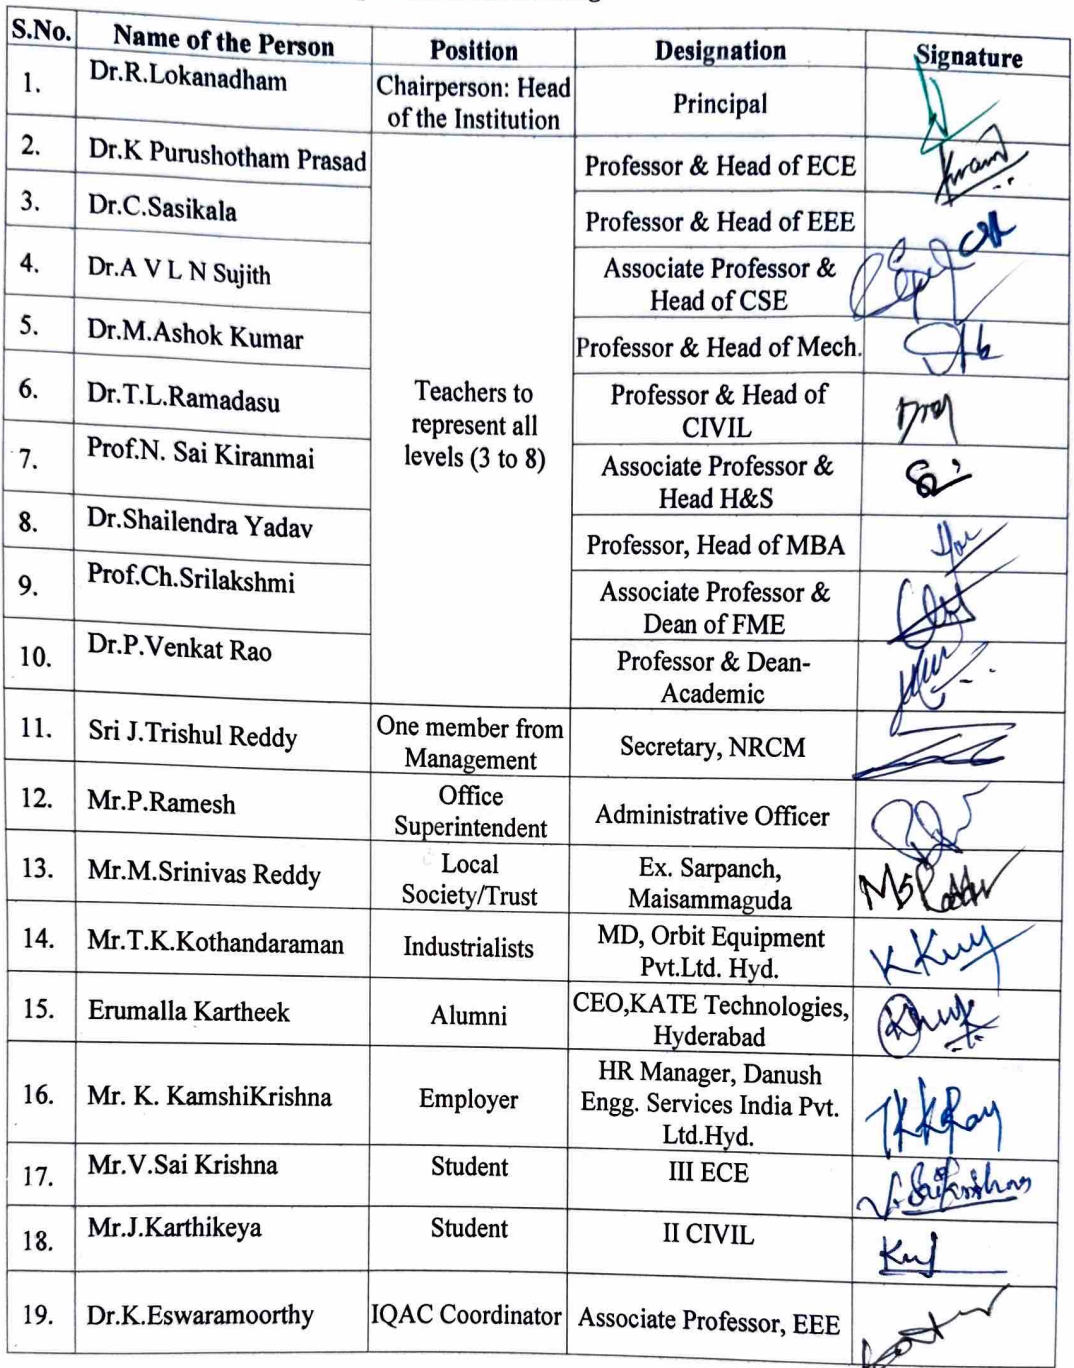 S.No. Name of the Person Position Designation Signature
1. Dr.R.Lokanadham Chairperson: Head of the Institution Principal
2. Dr.K Purushotham Prasad Teachers to represent all levels (3 to 8) Professor & Head of ECE
3. Dr.C.Sasikala Professor & Head of EEE
4. Dr.A V L N Sujith Associate Professor & Head of CSE
5. Dr.M.Ashok Kumar Professor & Head of Mech.
6. Dr.T.L.Ramadasu Professor & Head of CIVIL
7. Prof.N. Sai Kiranmai Associate Professor & Head H&S
8. Dr.Shailendra Yadav Professor, Head of MBA
9. Prof.Ch.Srilakshmi Associate Professor & Dean of FME
10. Dr.P.Venkat Rao Professor & Dean-Academic
11. Sri J.Trishul Reddy One member from Management Secretary, NRCM
12. Mr.P.Ramesh Office Superintendent Administrative Officer
13. Mr.M.Srinivas Reddy Local Society/Trust Ex. Sarpanch, Maisammaguda
14. Mr.T.K.Kothandaraman Industrialists MD, Orbit Equipment Pvt.Ltd. Hyd.
15. Erumalla Kartheek Alumni CEO,KATE Technologies, Hyderabad
16. Mr. K. KamshiKrishna Employer HR Manager, Danush Engg. Services India Pvt. Ltd.Hyd.
17. Mr.V.Sai Krishna Student III ECE V. Saikrishna
18. Mr.J.Karthikeya Student II CIVIL
19. Dr.K.Eswaramoorthy IQAC Coordinator Associate Professor, EEE